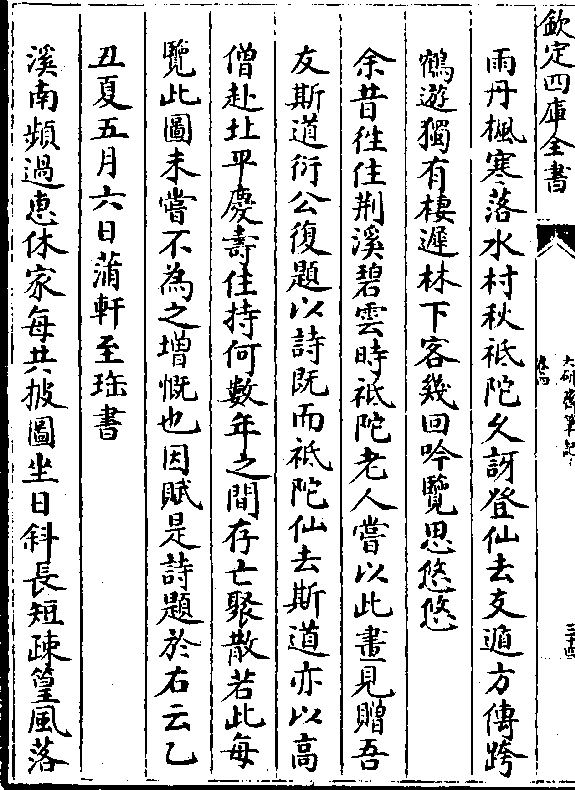 欽定四庫全書
六研齋筆記
卷四
雨丹楓寒落水村秋祗陀久訝登仙去支遁方傳跨
鶴遊獨有棲遲林下客幾回吟覽思悠悠
余昔徃住荆溪碧雲時祗陀老人嘗以此畫見贈吾
友斯道衍公復題以詩既而祗陀仙去斯道亦以高
僧赴北平慶壽住持何數年之間存亡聚散若此每
覽此圖未嘗不為之増慨也因賦是詩題於右云乙
丑夏五月六日蒲軒至㻂書
溪南頻過惠休家每共披圖坐日斜長短疎篁風落